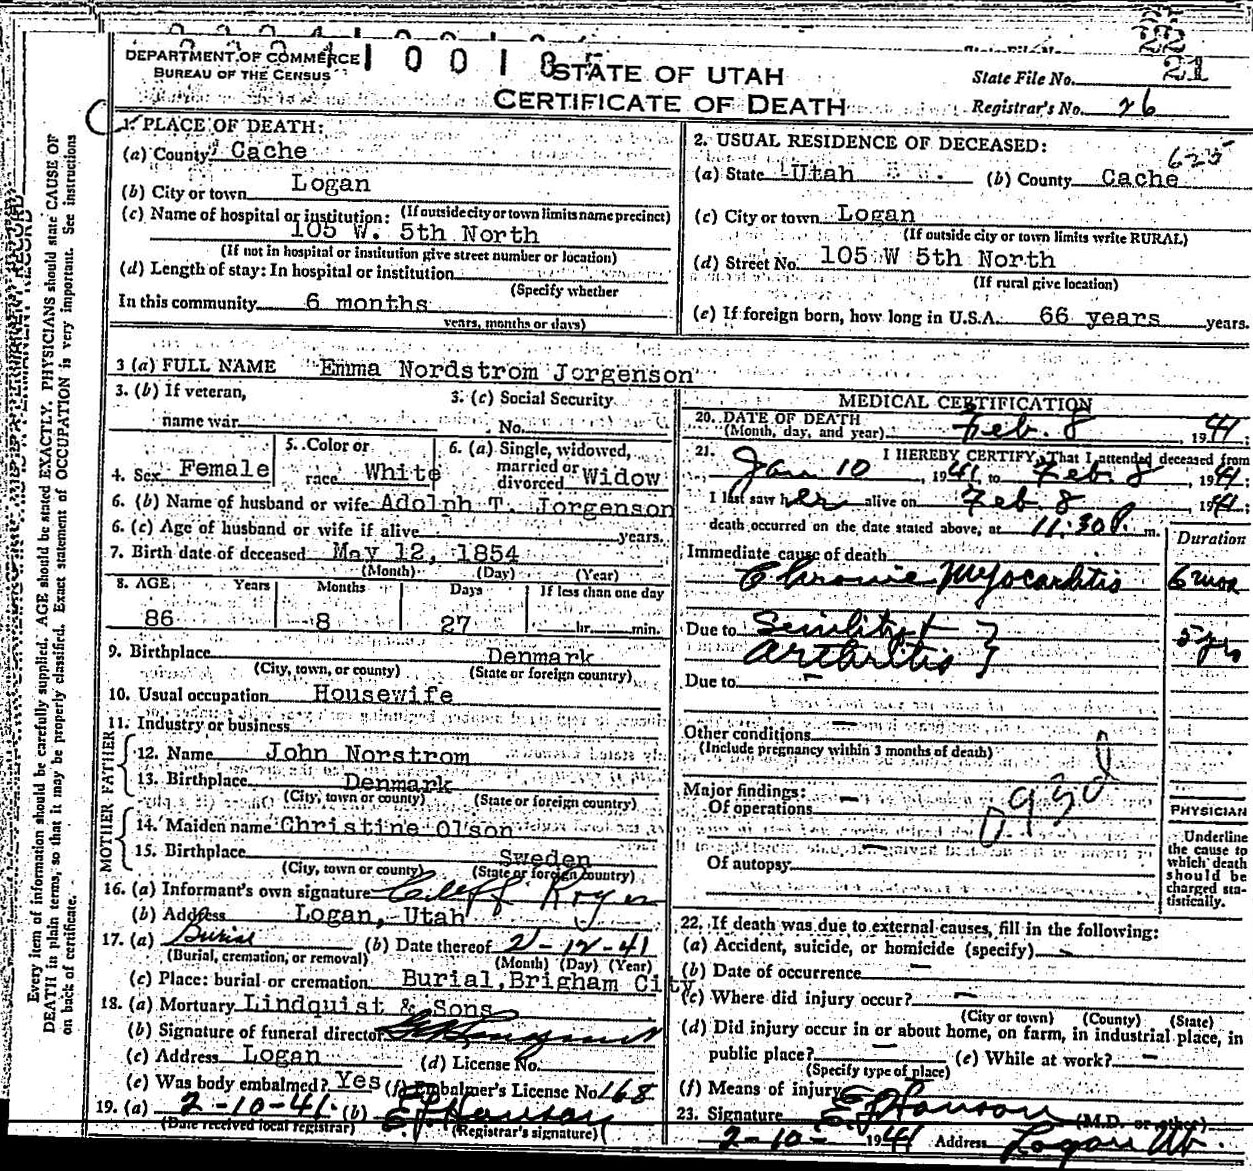 DEPARTMENT OF COMMERCE
BUREAU OF THE CENSUS
STATE OF UTAH
CERTIFICATE OF DEATH
State File No. 21
Registrar's No. 26
1. PLACE OF DEATH:
(a) County Cache
(b) City or town Logan
(If outside city or town limits name precinct)
(c) Name of hospital or institution:
105 W. 5th North
(If not in hospital or institution give street number or location)
(d) Length of stay: In hospital or institution
(Specify whether
In this community 6 months
years, months or days)
2. USUAL RESIDENCE OF DECEASED:
(a) State Utah (b) County Cache
(c) City or town Logan
(If outside city or town limits write RURAL)
(d) Street No. 105 W 5th North
(If rural give location)
(e) If foreign born, how long in U.S.A. 66 years years.
3 (a) FULL NAME Emma Nordstrom Jorgenson
3. (b) If veteran,
name war
3. (c) Social Security
No.
4. Sex Female
5. Color or
race White
6. (a) Single, widowed,
married or
divorced Widow
6. (b) Name of husband or wife Adolph T. Jorgenson
6. (c) Age of husband or wife if alive years.
7. Birth date of deceased May 12, 1854
(Month) (Day) (Year)
8. AGE Years Months Days If less than one day
86 8 27 hr. min.
9. Birthplace Denmark
(City, town, or county) (State or foreign country)
10. Usual occupation Housewife
11. Industry or business
FATHER
12. Name John Norstrom
13. Birthplace Denmark
(City, town or county) (State or foreign country)
MOTHER
14. Maiden name Christine Olson
15. Birthplace Sweden
(City, town, or county) (State or foreign country)
16. (a) Informant's own signature
(b) Address Logan, Utah
17. (a) Burial (b) Date thereof 2-12-41
(Burial, cremation, or removal) (Month) (Day) (Year)
(c) Place: burial or cremation Burial, Brigham City
18. (a) Mortuary Lindquist & Sons
(b) Signature of funeral director
(c) Address Logan (d) License No.
(e) Was body embalmed? Yes (f) Embalmer's License No. 168
19. (a) 2-10-41 (b) E J Hanson
(Date received local registrar) (Registrar's signature)
MEDICAL CERTIFICATION
20. DATE OF DEATH
(Month, day, and year) Feb. 8, 1941
21. I HEREBY CERTIFY, That I attended deceased from
Jan 10, 1941, to Feb. 8, 1941;
I last saw her alive on Feb 8, 1941;
death occurred on the date stated above, at 11:30 P. m.
Duration
Immediate cause of death
Chronic Myocarditis 6 mos
Due to Senility + 5 yrs
Arthritis
Due to
Other conditions
(Include pregnancy within 3 months of death)
Major findings:
Of operations
Of autopsy
PHYSICIAN
Underline
the cause to
which death
should be
charged sta-
tistically.
22. If death was due to external causes, fill in the following:
(a) Accident, suicide, or homicide (specify)
(b) Date of occurrence
(c) Where did injury occur?
(City or town) (County) (State)
(d) Did injury occur in or about home, on farm, in industrial place, in
public place? (e) While at work?
(Specify type of place)
(f) Means of injury
23. Signature E J Hanson (M.D. or other)
2-10-1941 Address Logan Ut.
Every item of information should be carefully supplied. AGE should be stated EXACTLY. PHYSICIANS should state CAUSE OF
DEATH in plain terms, so that it may be properly classified. Exact statement of OCCUPATION is very important. See instructions
on back of certificate.